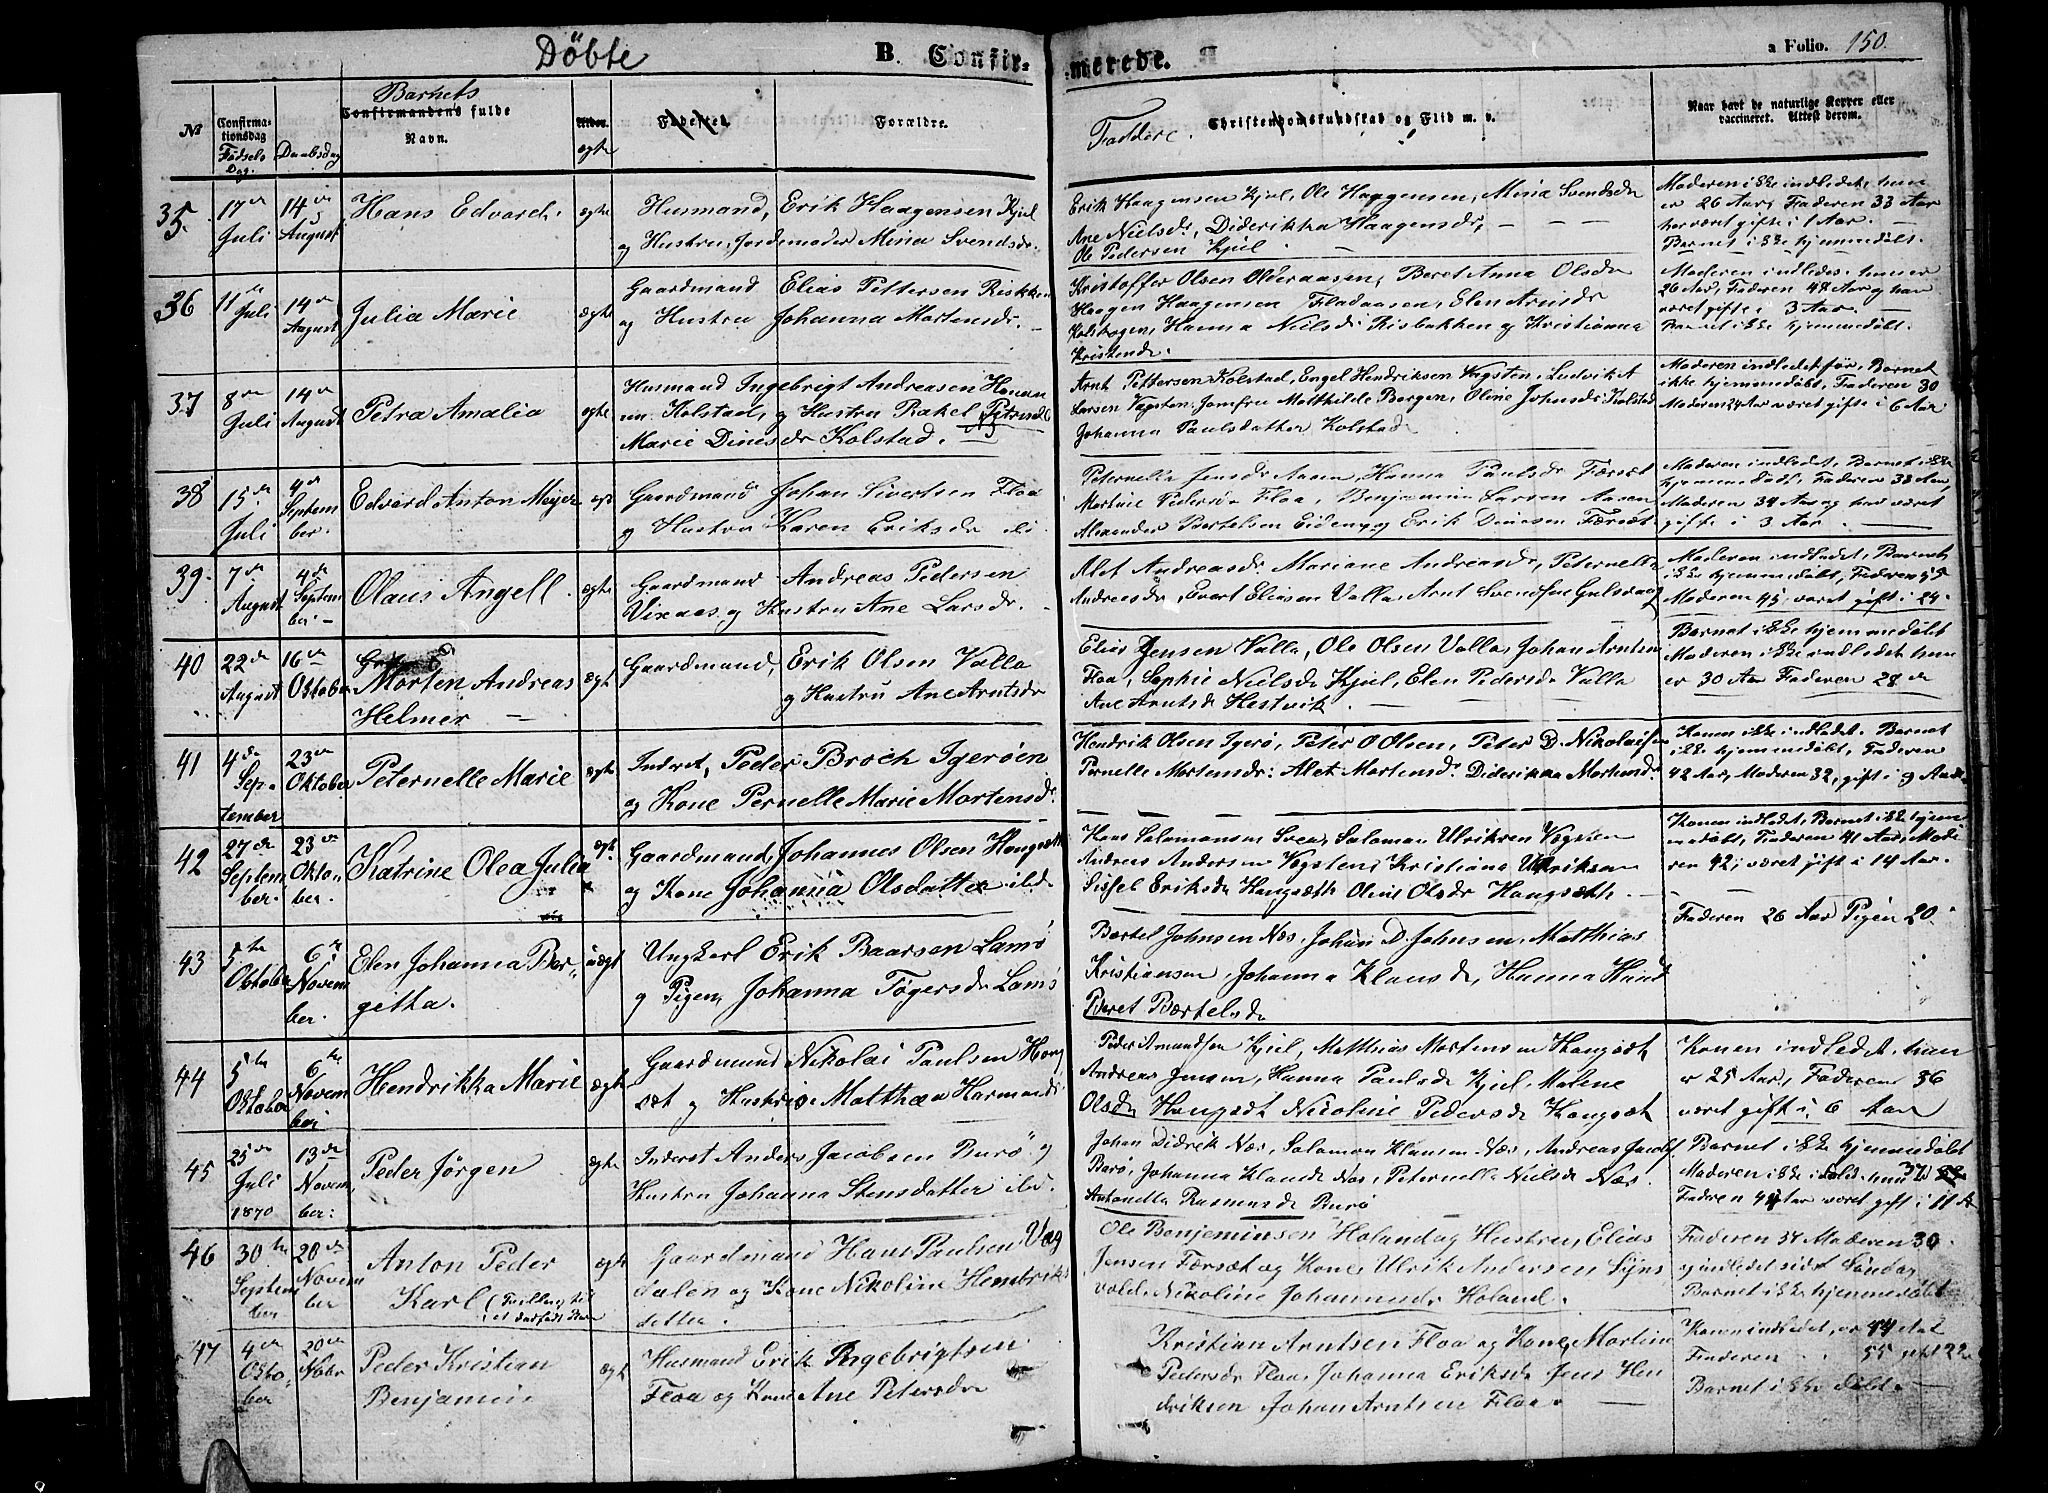 Döbte
B. Confir-
merede.
a Folio. 150.
№
Confirma-
tionsdag
Fødsels
Dag.
Daabsdag
Barnets
Confirmandens fulde
Navn.
Alder.
ægte
Fødested.
Forældre.
Faddere.
Christendomskundskab og Flid m. v.
Naar havt de naturlige Kopper eller
vaccineret. Attest derom.
35.
17de
Juli
14de
August
Hans Edvard.
ægte
Husmand, Erik Haagensen Kjel
og Hustru, Jordemoder Mina Svendsdr.
Erik Haagensen Kjel, Ole Haagensen, Mina Svendsdr
Ane Nielsdr, Diderikka Haagensdr,
Ole Pedersen Kjel
Moderen ikke indledet, hun
er 26 Aar, Faderen 33 Aar
har været gifte i 1 Aar.
Barnet ikke hjemmedøbt.
36
11te
Juli
14de
August
Julia Marie
ægte
Gaardmand Elias Pettersen
og Hustru Johanna Mortensdr.
Kristoffer Olsen Olderaasen, Beret Anna Olsdr
Haagen Haagensen Fladaasen, Elen Arntsdr
Hanna Nielsdr Risbakken og Kristianna
Kristensdr.
Moderen indledes, hun er
26 Aar, Faderen 48 Aar og har
været gifte i 3 Aar.
Barnet ikke hjemmedøbt.
37
8de
Juli
14de
August
Petra Amalia
ægte
Husmand Ingebrigt Andreasen
Kolstad, og Hustru Rakel Petrine
Marie Dinesdr Kolstad.
Arnt Pettersen Kolstad, Engel Hendriksen Vegsten, Ludvik A
Larsen Vegsten, Jomfru Matthilde Borgen, Oline Johnsdr Kolstad
Johanna Paulsdatter Kolstad
Moderen indledet før, Barnet
ikke hjemmedøbt, Faderen 30
Moderen 24 Aar været gifte i 6 Aar
38
15de
Juli
4de
Septem
ber.
Edvard Anton Meyer
ægt
Gaardmand Johan Sivertsen Floa
og Hustru Karen Eriksdr
Peternella Jensdr Aasen Hanna Paulsdr Færsæt
Martine Pedersdr Floa, Benjamin Larsen Aasen
Alexander Bertelsen Eideng og Erik Dinesen Færsæt
Moderen indledet, Barnet ikke
hjemmedøbt, Faderen 33 Aar,
Moderen 34 Aar og har været
gifte i 3 Aar.
39.
7de
August
4de
Septem
ber.
Olaus Angell.
ægte
Gaardmand Andreas Pedersen
Vixaas og Hustru Ane Larsdr.
Alet Andreasdr Mariane Andreasdr, Peternella
Andreasdr, Evert Eliasen Valla, Arnt Svendsen
Moderen indledet, Barnet
ikke hjemmedøbt, Faderen 55
Moderen 45, været gift i 24.
40
22de
August
16de
Oktober
Morten Andreas
Helmer
ægt
Gaardmand, Erik Olsen Valla
og Hustru Ane Arntsdr
Elias Jensen Valla, Ole Olsen Valla, Johan Arntsen
Floa, Sophie Nielsdr Kjel, Elen Pedersdr Valla
Ane Arntsdr Hestvik.
Barnet ikke hjemmedøbt
Moderen ikke indledet hun
er 30 Aar Faderen 28 de
41
4de
Sep-
tember
23de
Oktober
Peternelle Marie
ægte
Inderst, Peder Broch Igerøen
og Kone Pernelle Marie Mortensdr.
Hendrik Olsen Igerø, Peter O Olsen, Peter D. Nikolaisen
Pernelle Mortensdr: Alet Mortensdr. Diderikka Mortensdr
Konen ikke indledet. Barnet
ikke hjemmedøbt, Faderen
42 Aar, Moderen 32, gift i 9 Aar
42
27de
Septem
ber.
23de
Okto
ber.
Katrine Olea Julia
ægt.
Gaardmand, Johannes Olsen Hongsæth
og Kone Johanna Olsdatter ibd
Hans Salamonsen Sven, Salomon Ulriksen Vegsten
Andreas Andersen Vegsten, Kristiana Ulriksen
Sissel Eriksdr Hongsæth Oline Olsdr Hongsæth.
Konen indledet, Barnet ikke hjem
medøbt, Faderen 41 Aar, Mode
ren 42, været gift i 14 Aar.
43
5te
Oktober
6te
Novem
ber.
Elen Johanna Ber-
getta.
uægt
Ungkarl Erik Baarsen Lamø
og Pigen Johanna Tøgersdr Lamø
Bertel Johnsen Næs, Johan D. Johnsen, Matthias
Kristiansen, Johanna Klausdr, Hanna
Beret Bertelsdr
Faderen 26 Aar Pigen 20.
44
5te
Oktober
6te
Novem
ber
Hendrikka Marie
ægte
Gaardmand Nikolai Paulsen Hong
sæt og Hustru Matthea Harmandsdr
Peder Amundsen Kjel, Matthias Mortensen Hongsæt
Andreas Jensen, Hanna Paulsdr Kjel, Malene
Olsdr Hongsæt Nicoline Pedersdr Hongsæt
Konen indledet, hun
er 25 Aar, Faderen 36
været gift i 6 Aar
45
25de
Juli
1870
13de
Novem
ber:
Peder Jörgen
ægte
Inderst Anders Jacobsen Burø og
Hustru Johanna Stensdatter ibd.
Johan Didrik Næs, Salamon Klausen Næs, Andreas Jacobs
Burø, Johanna Klausdr Næs, Peternella Nielsdr Næs.
Antonella Rasmusdr Burø
Barnet ikke hjemmedøbt
Moderen ikke indled. hun 37
Faderen 44 Aar været gift i 11 A
46
30te
Septem
ber
20de
Novem
ber
Anton Peder
Karl (Tvilling til
et dødfødt Barn
ægte
Gaardmand Hans Paulsen Vog
dalen og Kone Nikoline Hendriks
datter.
Ole Benjaminsen Holand og Hustru, Elias
Jensen Færsæt og Kone, Ulrik Andersen
Nikoline Johannesdr Holand.
Faderen 37 Moderen 30.
og indledet sidst Søndag
Barnet ikke hjemmedøbt
47
4de
Okto-
ber
20de
Nobr
Peder Kristian
Benjamin
ægt
Husmand Erik Ingebrigtsen
Floa og Kone Ane Petersdr
Kristian Arntsen Floa og Kone Martine
Pedersdr Floa, Johanna Eriksdr Jens Hen
driksen Johan Arntsen Floa.
Konen indledet, er 44 Aar
Faderen 55 gift 22
Barnet ikke døbt.